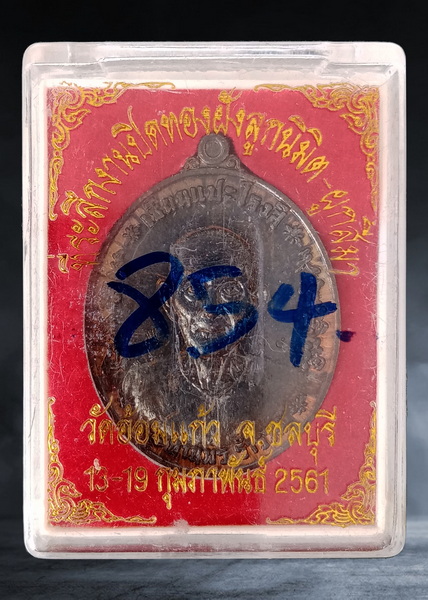 ที่ระลึกงานปิดทองฝังลูกนิมิต-ผูกสีมา
854.
วัดอ้อมแก้ว จ.ชลบุรี
13-19 กุมภาพันธ์ 2561